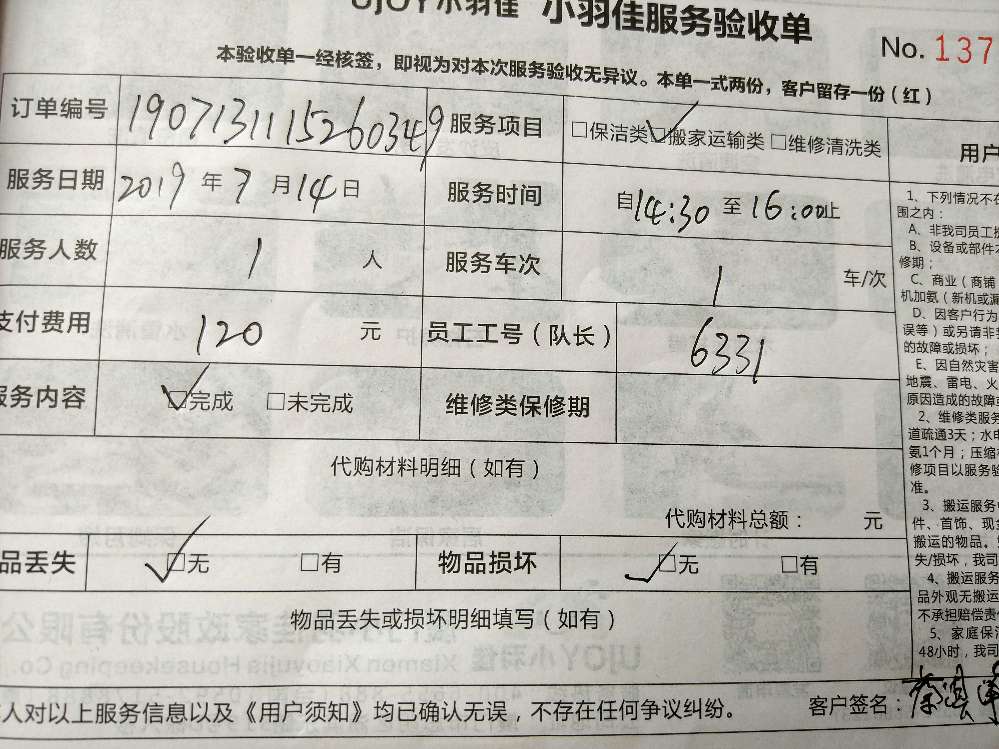 UJOY小羽佳 小羽佳服务验收单
No. 137
本验收单一经核签，即视为对本次服务验收无异议。本单一式两份，客户留存一份（红）
订单编号 190713111526034９ 服务项目 □保洁类 □搬家运输类 □维修清洗类
服务日期 2019 年 7 月 14 日 服务时间 自 14:30 至 16:00 止
服务人数 1 人 服务车次 1 车/次
支付费用 120 元 员工工号（队长） 6331
服务内容 □完成 □未完成 维修类保修期
代购材料明细（如有）
代购材料总额： 元
品丢失 □无 □有 物品损坏 □无 □有
物品丢失或损坏明细填写（如有）
人对以上服务信息以及《用户须知》均已确认无误，不存在任何争议纠纷。 客户签名：
用户
1、下列情况不在
围之内：
A、非我司员工
B、设备或部件
修期；
C、商业（商铺
机加氨（新机或漏
D、因客户行为
误等）或另请非
的故障或损坏；
E、因自然灾害
地震、雷电、火
原因造成的故障或
2、维修类服务
道疏通3天；水电
氨1个月；压缩
修项目以服务验
准。
3、搬运服务
件、首饰、现
搬运的物品。
失/损坏，我司
4、搬运服务
品外观无搬运
不承担赔偿责
5、家庭保洁
48小时，我司